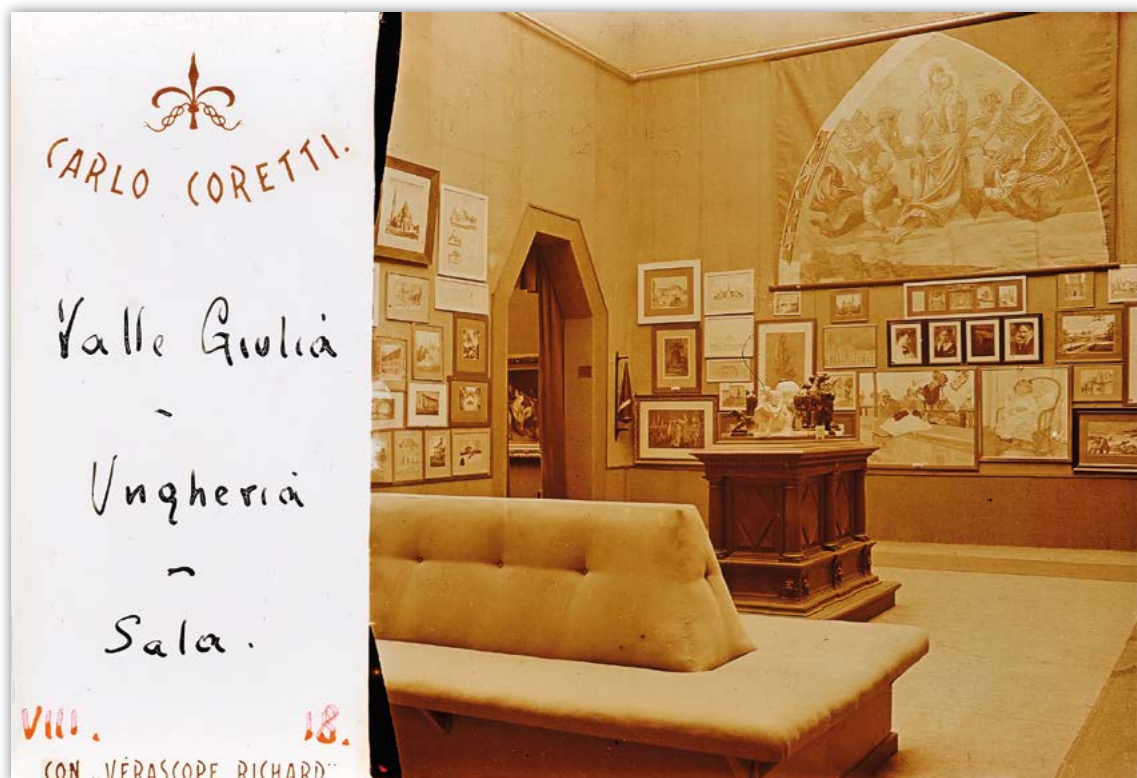 CARLO CORETTI.
Valle Giulia
-
Ungheria
~
Sala.
VIII. 18.
CON „VÉRASCOPE RICHARD"